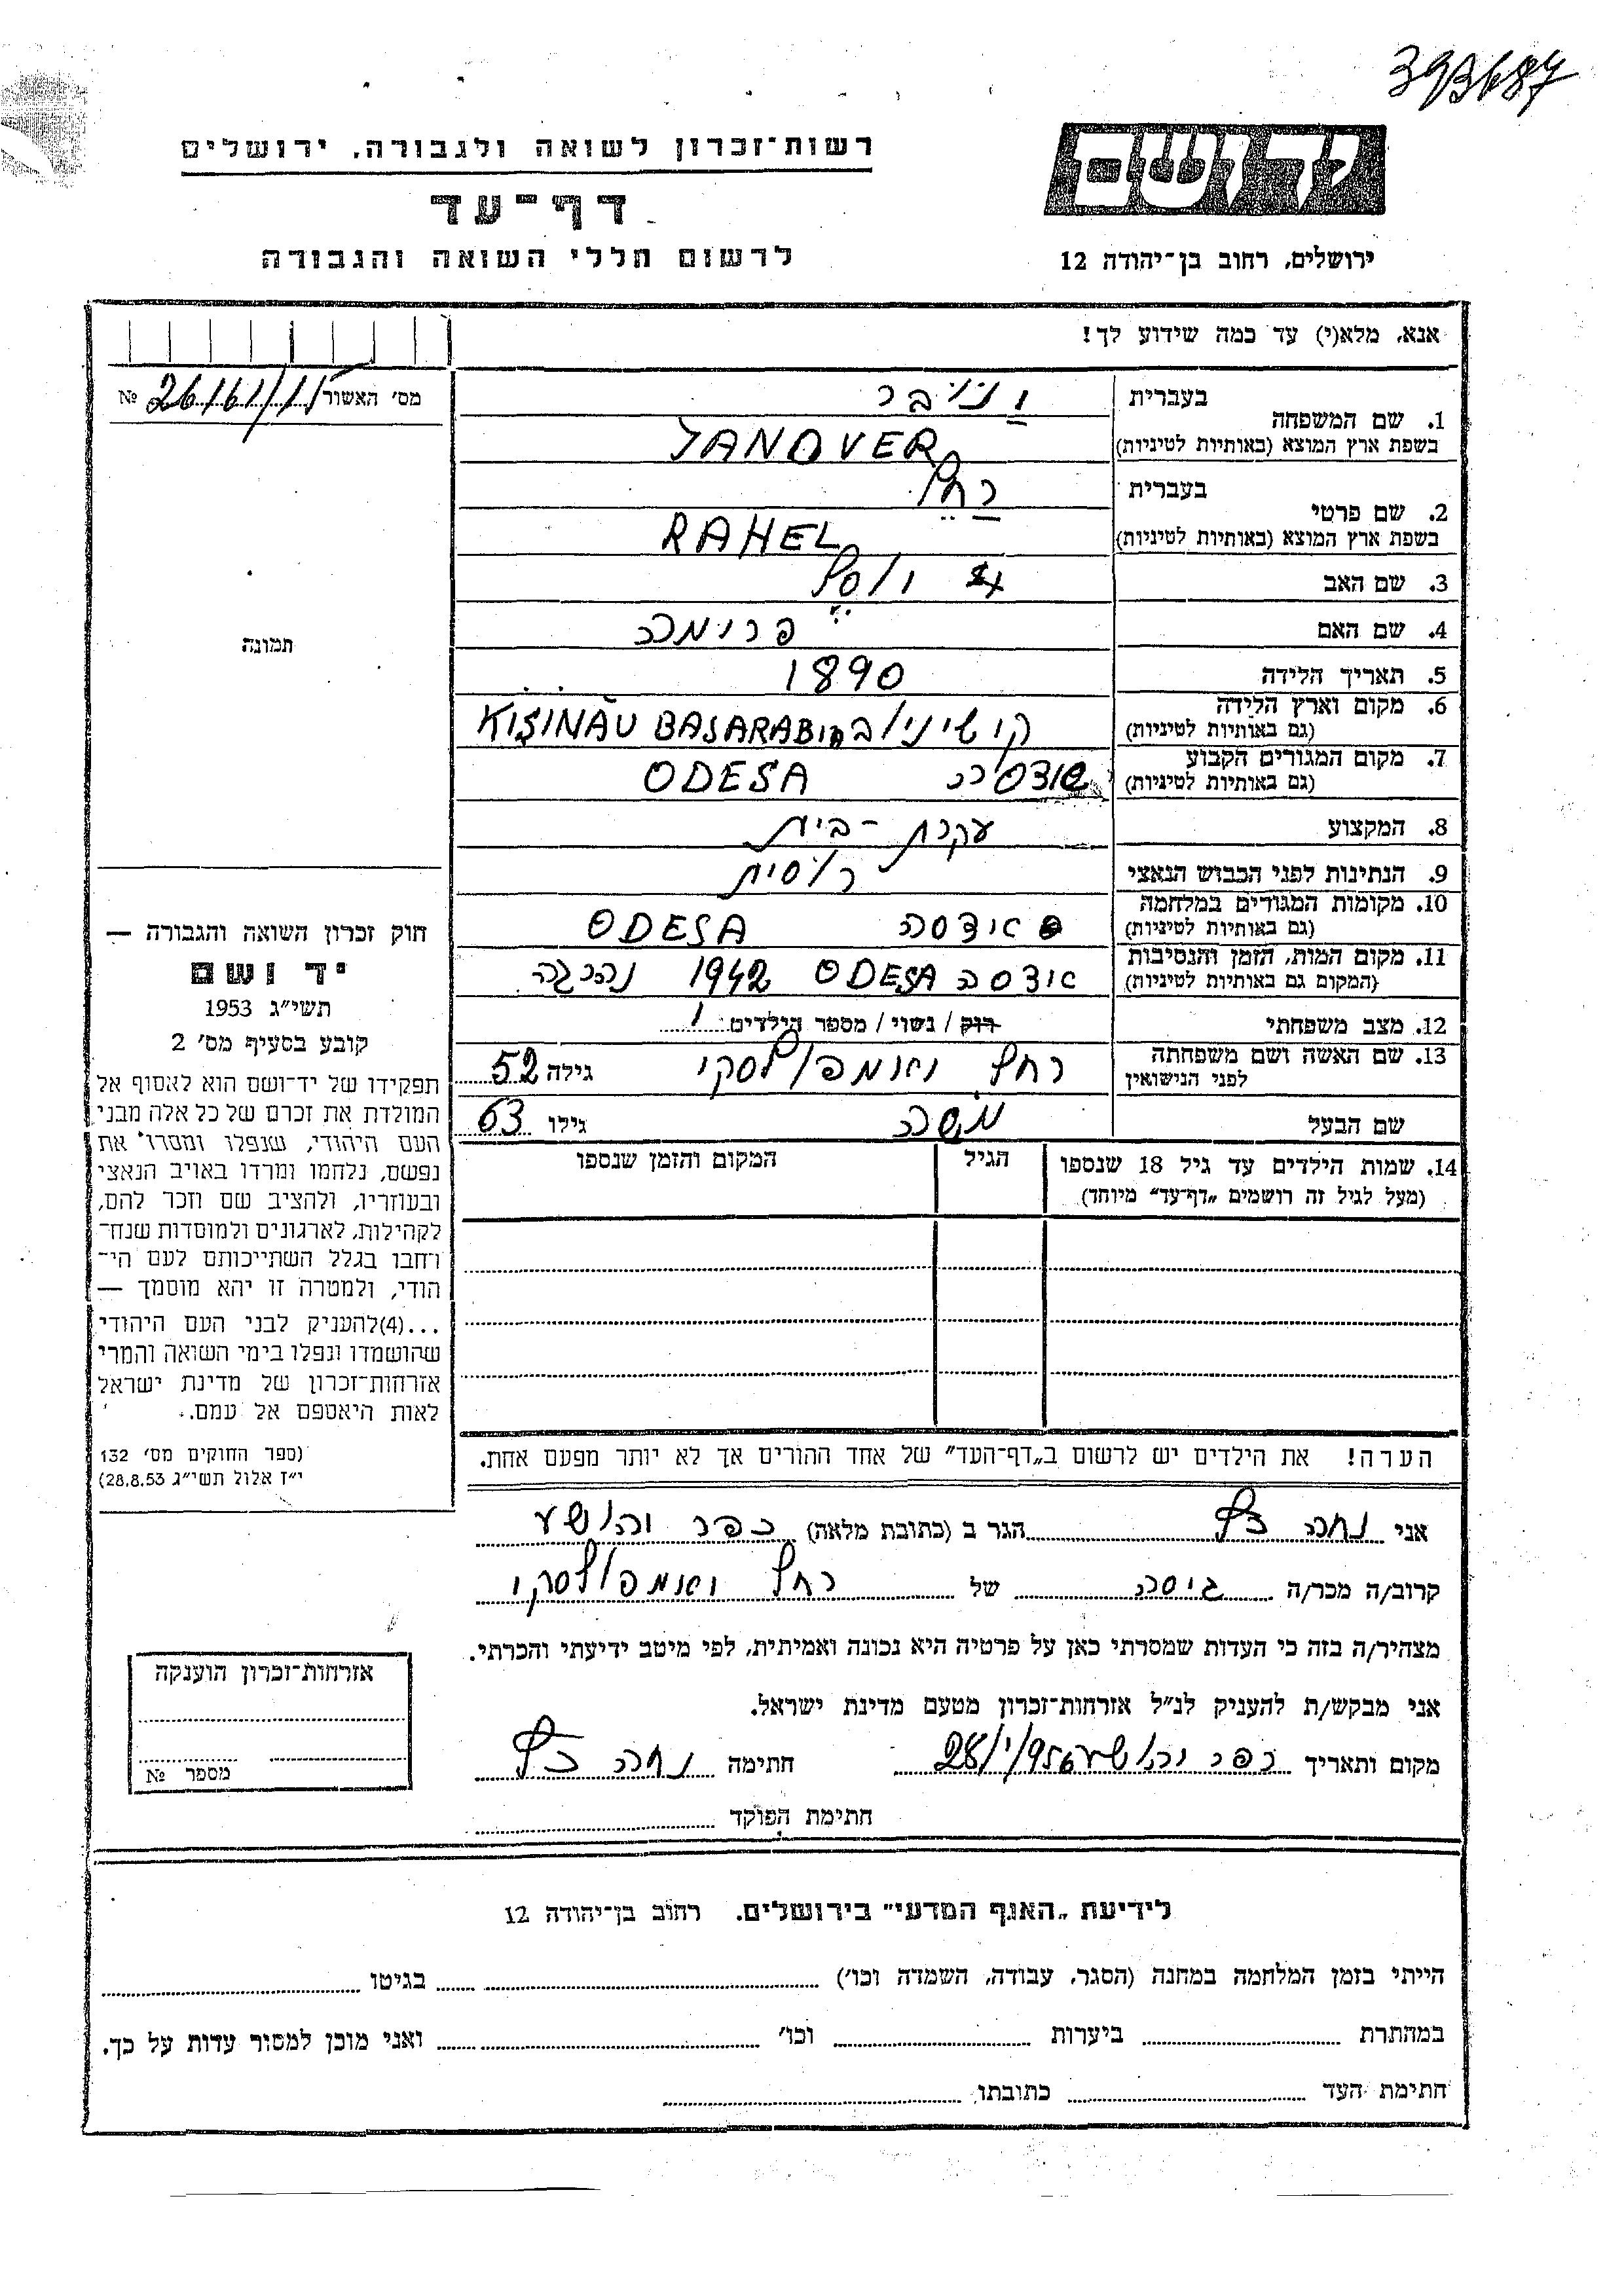 393687
רשות־זכרון לשואה ולגבורה, ירושלים
דף־עד
לרשום חללי השואה והגבורה
יד ושם
ירושלים, רחוב בן־יהודה 12
אנא, מלא(י) עד כמה שידוע לך!
מס׳ האשור № 26161/11
1. שם המשפחה בעברית
בשפת ארץ המוצא (באותיות לטיניות) JANOVER
2. שם פרטי בעברית רחל
בשפת ארץ המוצא (באותיות לטיניות) RAHEL
3. שם האב יוסל
4. שם האם פרומה
5. תאריך הלידה 1890
6. מקום וארץ הלידה (גם באותיות לטיניות) KIŞINĂU BASARABIA
7. מקום המגורים הקבוע (גם באותיות לטיניות) ODESA
8. המקצוע עקרת-בית
9. הנתינות לפני הכבוש הנאצי רוסית
10. מקומות המגורים במלחמה (גם באותיות לטיניות) אודסה ODESA
11. מקום המות, הזמן והנסיבות (המקום גם באותיות לטיניות) אודסה ODESA 1942 נהרגה
12. מצב משפחתי רוק / נשוי / מספר הילדים 1
13. שם האשה ושם משפחתה לפני הנישואין רחל יאמפולסקי גילה 52
שם הבעל משה גילו 63
14. שמות הילדים עד גיל 18 שנספו (מעל לגיל זה רושמים „דף־עד״ מיוחד) הגיל המקום והזמן שנספו
הערה! את הילדים יש לרשום ב„דף־העד״ של אחד ההורים אך לא יותר מפעם אחת.
תמונה
חוק זכרון השואה והגבורה —
יד ושם
תשי״ג 1953
קובע בסעיף מס׳ 2
תפקידו של יד־ושם הוא לאסוף אל
המולדת את זכרם של כל אלה מבני
העם היהודי, שנפלו ומסרו את
נפשם, נלחמו ומרדו באויב הנאצי
ובעוזריו, ולהציב שם וזכר להם,
לקהילות, לארגונים ולמוסדות שנח־
רחבו בגלל השתייכותם לעם הי־
הודי, ולמטרה זו יהא מוסמך —
...(4)להעניק לבני העם היהודי
שהושמדו ונפלו בימי השואה והמרי
אזרחות־זכרון של מדינת ישראל
לאות היאספם אל עמם.
(ספר החוקים מס׳ 132
י״ז אלול תשי״ג 28.8.53)
אני נחה הגר ב (כתובת מלאה) כפר יהושע
קרוב/ה מכר/ה גיסה של רחל יאמפולסקי
מצהיר/ה בזה כי העדות שמסרתי כאן על פרטיה היא נכונה ואמיתית, לפי מיטב ידיעתי והכרתי.
אני מבקש/ת להעניק לנ״ל אזרחות־זכרון מטעם מדינת ישראל.
מקום ותאריך כפר יהושע 28/1/956 חתימה נחה
חתימת הפוקד
אזרחות־זכרון הוענקה
מספר №
לידיעת „האגף המדעי״ בירושלים. רחוב בן־יהודה 12
הייתי בזמן המלחמה במחנה (הסגר, עבודה, השמדה וכו׳) בגיטו
במחתרת ביערות וכו׳ ואני מוכן למסור עדות על כך.
חתימת העד כתובתו